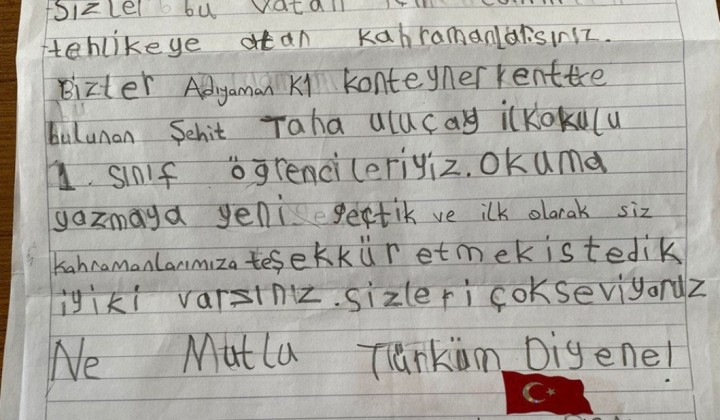 sizler bu vatan
tehlikeye atan kahramanlarsınız.
Bizler Adıyaman K1 konteynerkentte
bulunan Şehit Taha uluçay ilkokulu
1. sınıf öğrencileriyiz. okuma
yazmaya yeni geçtik ve ilk olarak siz
kahramanlarımıza teşekkür etmek istedik
iyiki varsınız. sizleri çok seviyoruz
Ne Mutlu Türküm Diyene!